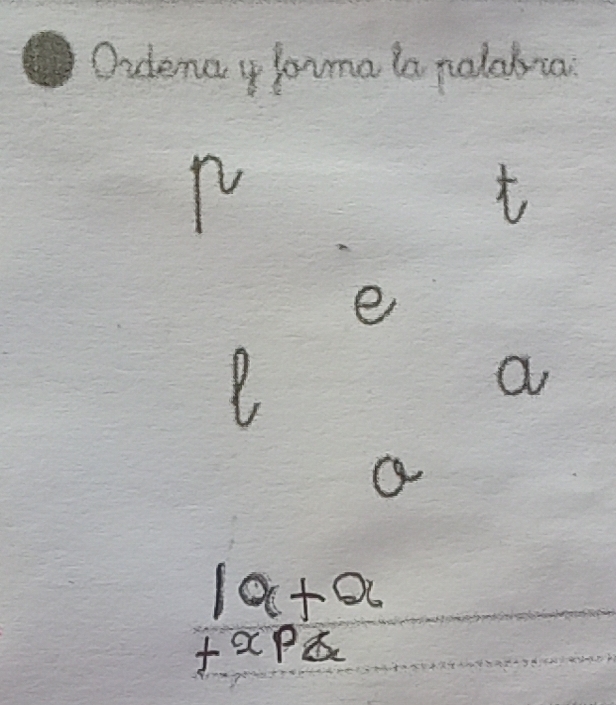 Ordena y forma la palabra:
p t
e
l a
o
lata
tapa